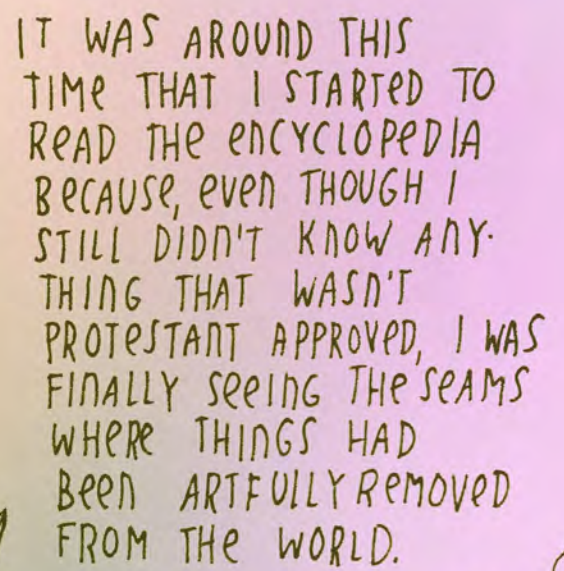 IT WAS AROUND THIS
TIME THAT I STARTED TO
READ THE ENCYCLOPEDIA
BECAUSE, EVEN THOUGH I
STILL DIDN'T KNOW ANY-
THING THAT WASN'T
PROTESTANT APPROVED, I WAS
FINALLY SEEING THE SEAMS
WHERE THINGS HAD
BEEN ARTFULLY REMOVED
FROM THE WORLD.